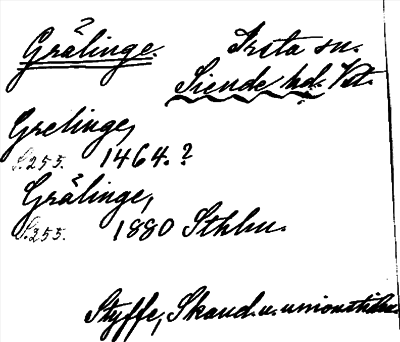 Grålinge. Irsta sn.
Siende hd. Vst.
Grelinge,
S.255. 1464.?
Grålinge,
S.255. 1880 Sthlm.
Styffe, Skand. u. unionstiden.